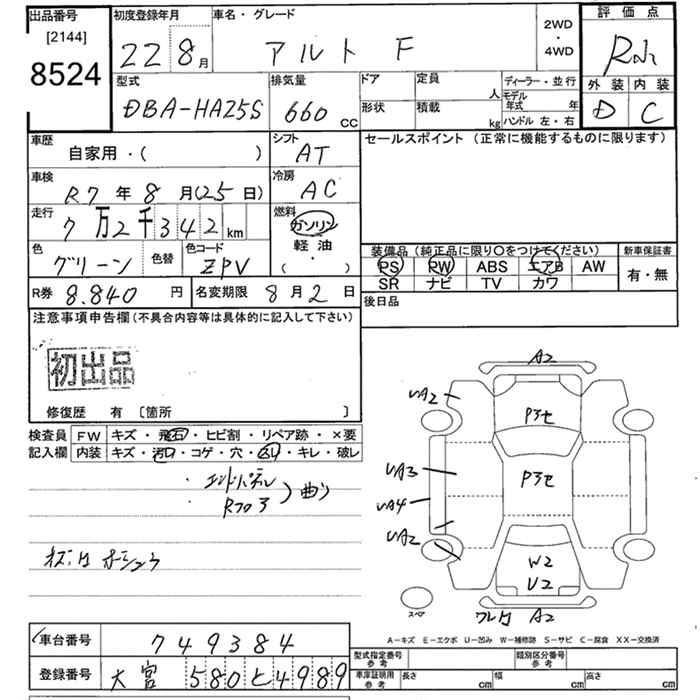 出品番号
[2144]
8524
初度登録年月
22 8月
車名・グレード
アルト F
2WD
・
4WD
評価点
外装 内装
D C
型式
DBA-HA25S
排気量
660 cc
ドア
定員
人
形状
積載
kg
ディーラー・並行
モデル
年式 年
ハンドル 左・右
車歴
自家用・( )
シフト
AT
セールスポイント (正常に機能するものに限ります)
車検
R7 年 8 月(25日)
冷房
AC
走行
7 万 2 千 3 4 2 km
燃料
ガソリン
軽油
( ・ )
色
グリーン
色替
色コード
ZPV
装備品 (純正品に限り○をつけてください)
PS PW ABS エアB AW
SR ナビ TV カワ
新車保証書
有・無
R券 8.840 円
名変期限 8月2日
後日品
注意事項申告欄 (不具合内容等は具体的に記入して下さい)
初出品
修復歴 有 [箇所 ]
検査員 FW キズ・飛石・ヒビ割・リペア跡・×要
記入欄 内装 キズ・汚れ・コゲ・穴・スレ・キレ・破レ
・エンドパネル
・Rフロア
曲り
A2
UA2
Pスセ
UA3
Pスセ
UA4
UA2
W2
U2
スペア
ワレ A2
A−キズ E−エクボ U−凹み W−補修跡 S−サビ C−腐食 XX−交換済
車台番号 749384
登録番号 大宮 580 と 4989
型式指定番号
参考
類別区分番号
参考
車庫証明用
参考
長さ cm
幅 cm
高さ cm